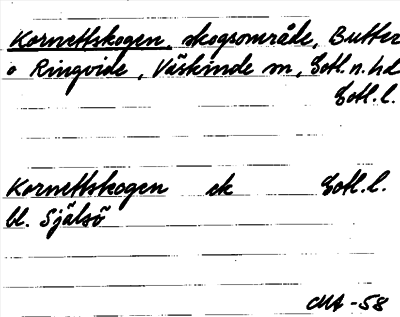 Kornettskogen, skogsområde, Butter
o Ringvide, Väskinde sn, Gotl. n. hd
Gotl. l.
Kornettskogen ek Gotl. l.
bl. Själsö
MA -58